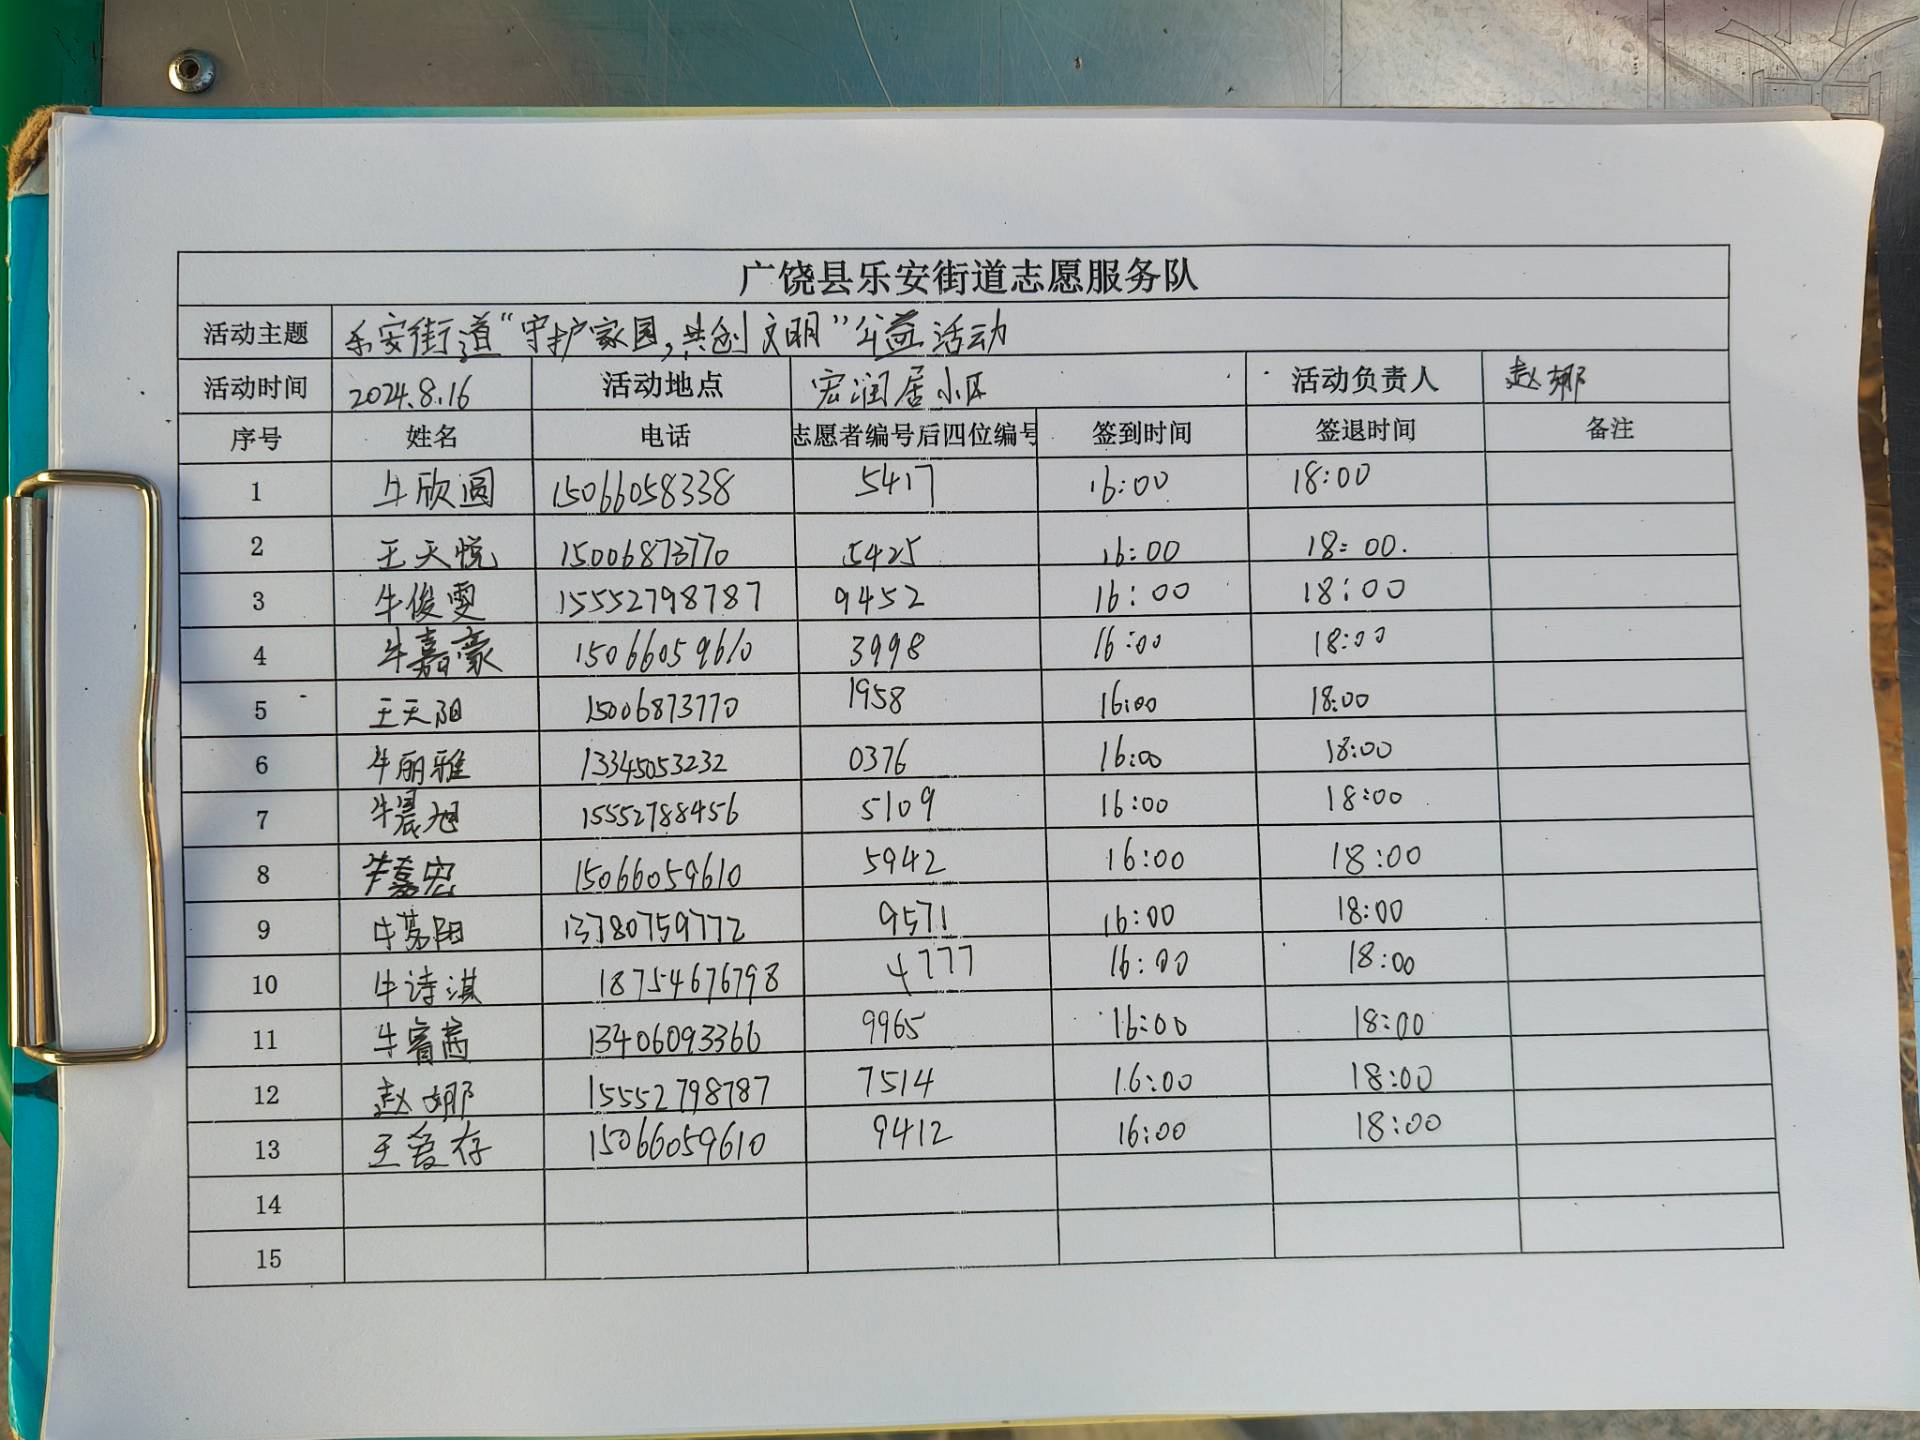 广饶县乐安街道志愿服务队
活动主题 乐安街道“守护家园,共创文明”公益活动
活动时间 2024.8.16 活动地点 宏润居小区 活动负责人 赵娜
序号 姓名 电话 志愿者编号后四位编号 签到时间 签退时间 备注
1 牛欣圆 15066058338 5417 16:00 18:00
2 王天悦 15006873770 5425 16:00 18:00.
3 牛俊雯 15552798787 9452 16:00 18:00
4 牛嘉豪 15066059610 3998 16:00 18:00
5 王天阳 15006873770 1958 16:00 18:00
6 牛丽雅 13345053232 0376 16:00 18:00
7 牛晨旭 15552788456 5109 16:00 18:00
8 牛嘉宏 15066059610 5942 16:00 18:00
9 牛 阳 13780759772 9571 16:00 18:00
10 牛诗淇 18754676798 4777 16:00 18:00
11 牛睿茜 13406093366 9965 16:00 18:00
12 赵娜 15552798787 7514 16:00 18:00
13 王爱存 15066059610 9412 16:00 18:00
14
15